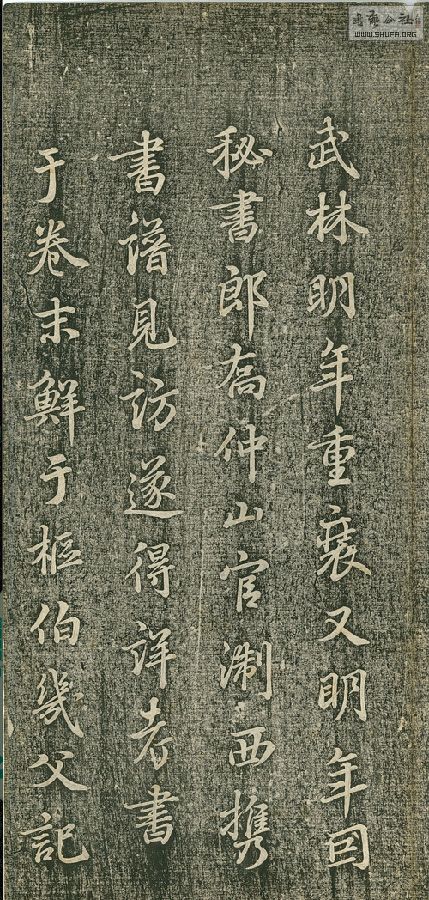 武林明年重裝又明年囙
秘書郎喬仲山官淛西攜
書譜見訪遂得詳考書
于卷末鮮于樞伯幾父記
WWW.SHUFA.ORG